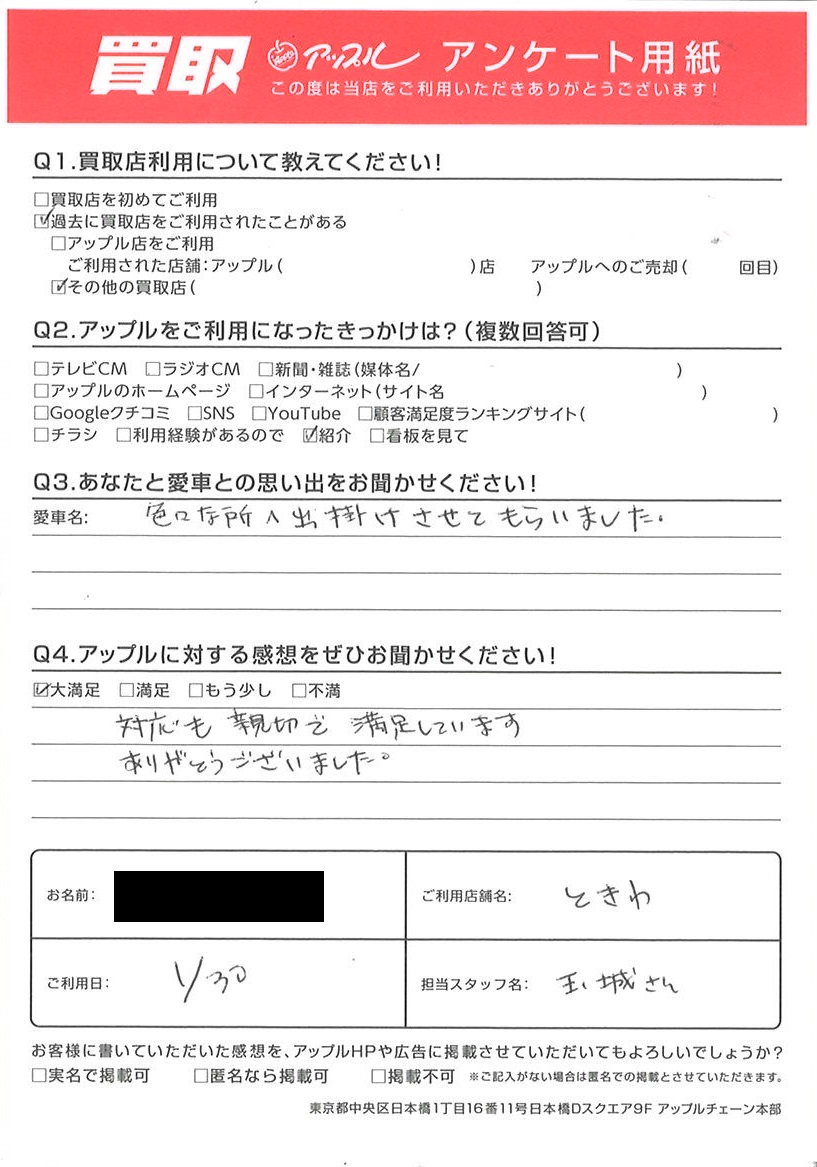 買取 アップル アンケート用紙
この度は当店をご利用いただきありがとうございます！
Q1.買取店利用について教えてください！
□買取店を初めてご利用
☑過去に買取店をご利用されたことがある
□アップル店をご利用
ご利用された店舗：アップル（ ）店 アップルへのご売却（ 回目）
☑その他の買取店（ ）
Q2.アップルをご利用になったきっかけは？（複数回答可）
□テレビCM □ラジオCM □新聞・雑誌（媒体名/ ）
□アップルのホームページ □インターネット（サイト名 ）
□Googleクチコミ □SNS □YouTube □顧客満足度ランキングサイト（ ）
□チラシ □利用経験があるので ☑紹介 □看板を見て
Q3.あなたと愛車との思い出をお聞かせください！
愛車名： 色々な所へ出掛けさせてもらいました。
Q4.アップルに対する感想をぜひお聞かせください！
☑大満足 □満足 □もう少し □不満
対応も親切で満足しています
ありがとうございました。
お名前： ご利用店舗名： ときわ
ご利用日： 1/30 担当スタッフ名： 玉城さん
お客様に書いていただいた感想を、アップルHPや広告に掲載させていただいてもよろしいでしょうか？
□実名で掲載可 □匿名なら掲載可 □掲載不可 ※ご記入がない場合は匿名での掲載とさせていただきます。
東京都中央区日本橋1丁目16番11号日本橋Dスクエア9F アップルチェーン本部